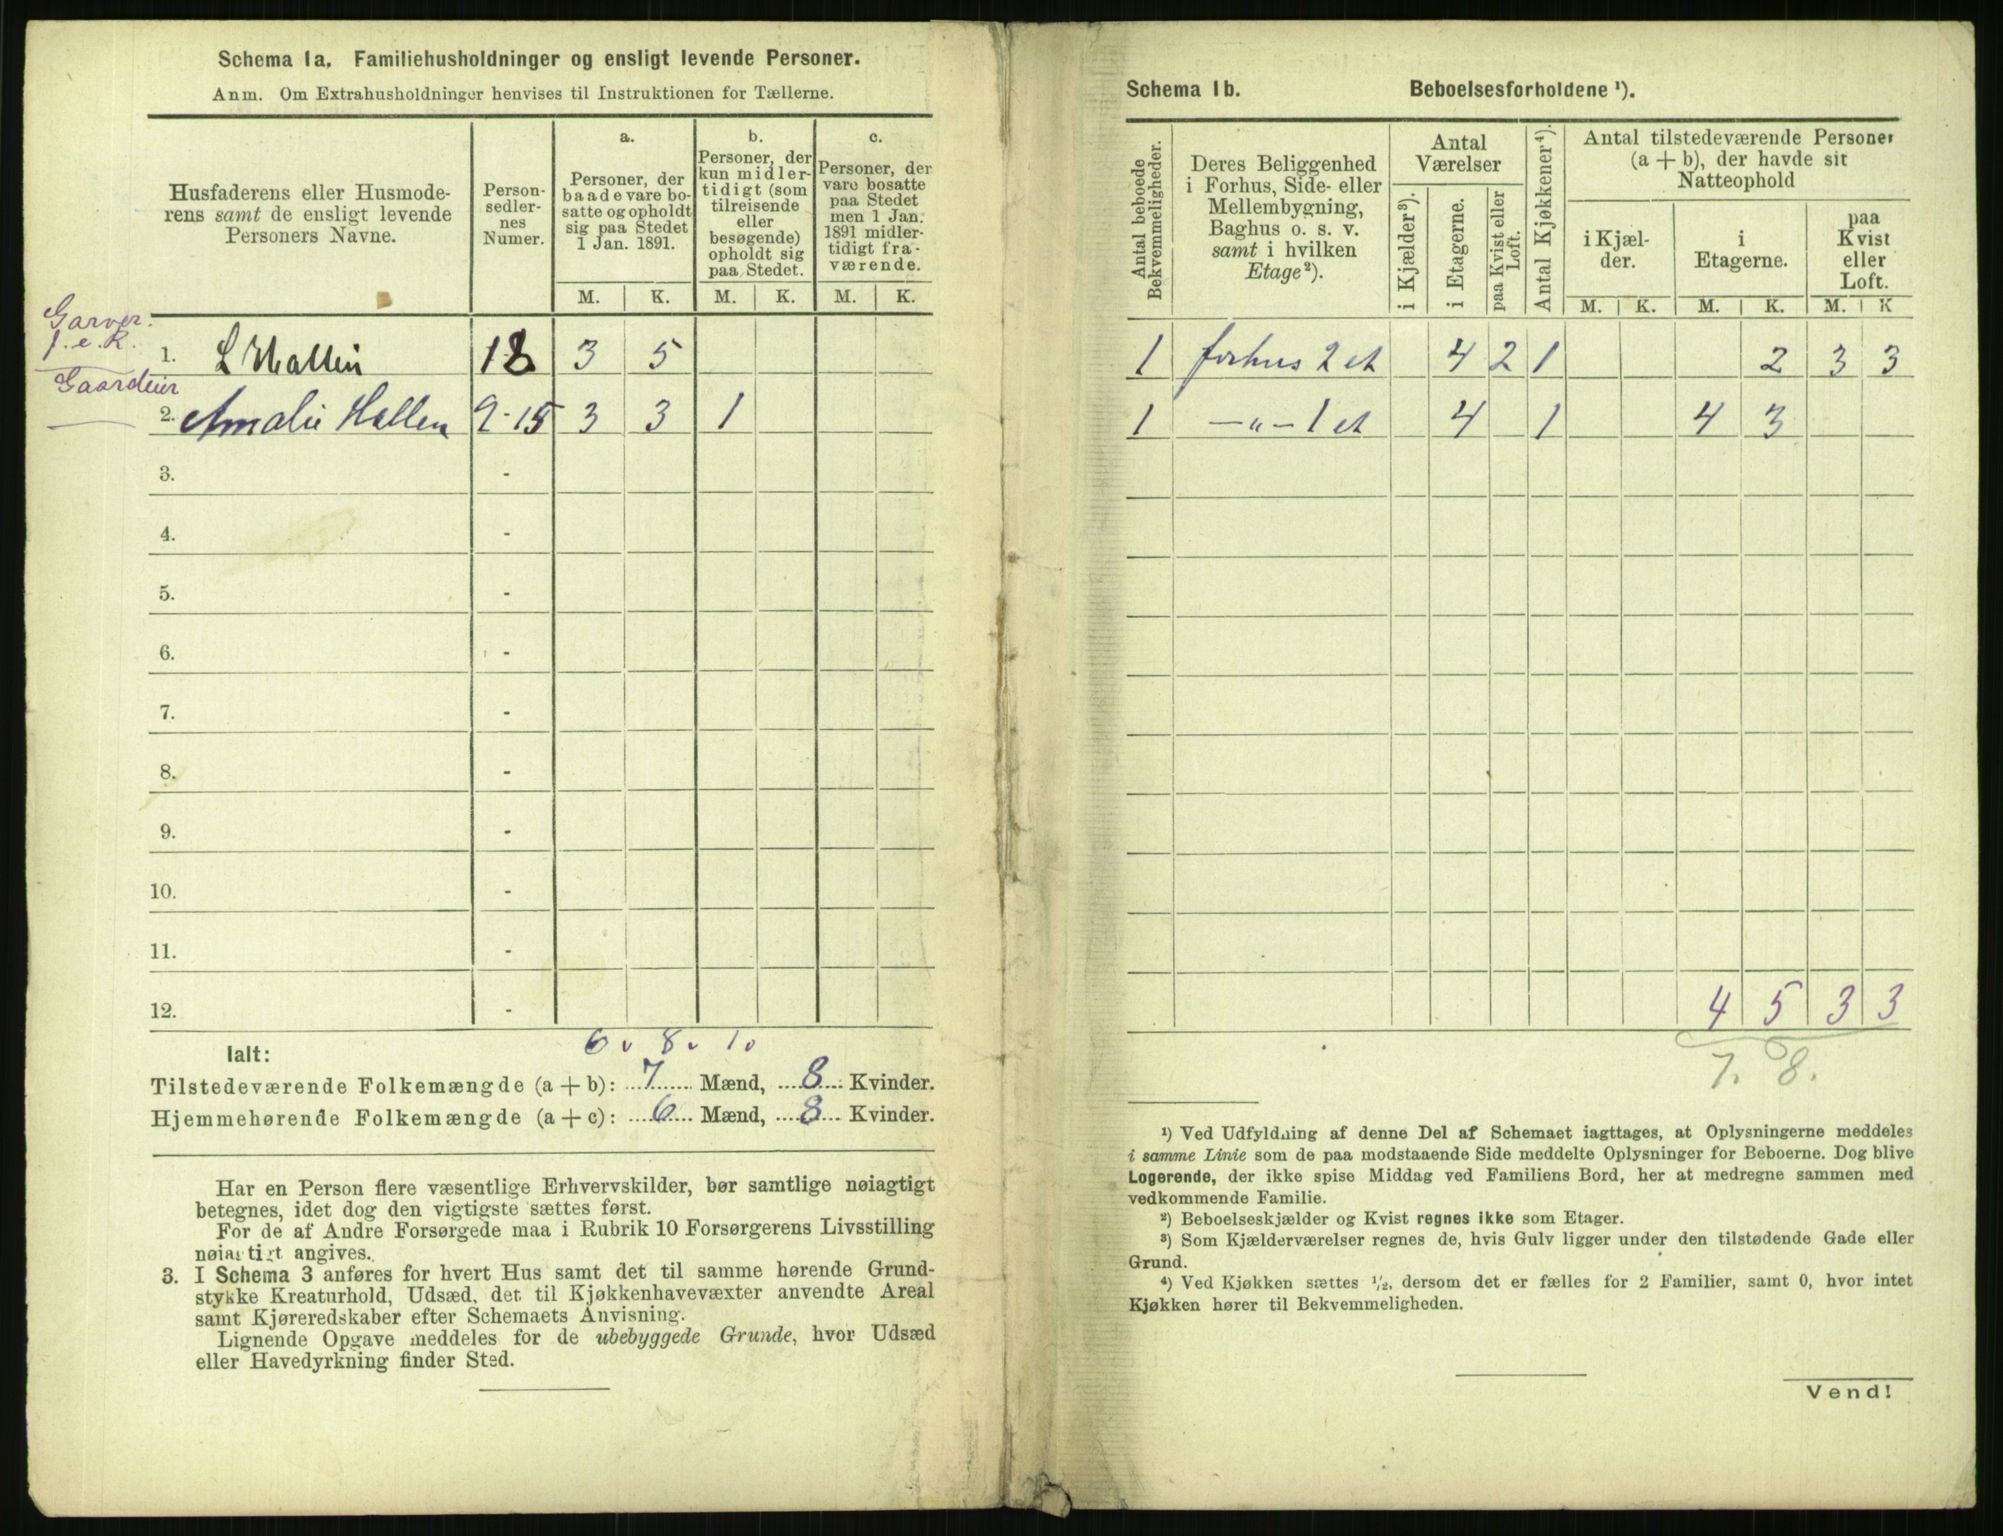 Schema 1a. Familiehusholdninger og ensligt levende Personer.
Anm. Om Extrahusholdninger henvises til Instruktionen for Tællerne.
Husfaderens eller Husmode-
rens samt de ensligt levende
Personers Navne.
Person-
sedler-
nes
Numer.
a.
Personer, der
baade vare bo-
satte og opholdt
sig paa Stedet
1 Jan. 1891.
b.
Personer, der
kun midler-
tidigt (som
tilreisende
eller
besøgende)
opholdt sig
paa Stedet.
c.
Personer, der
vare bosatte
paa Stedet
men 1 Jan.
1891 midler-
tidigt fra-
værende.
M. K. M. K. M. K.
Garver.
f. e. R.
1. L Hallén 1-8 3 5
Gaardeier
2. Amalie Hallen 9-15 3 3 1
3. -
4. -
5. -
6. -
7. -
8. -
9. -
10. -
11. -
12. -
6 8 1
Ialt:
Tilstedeværende Folkemængde (a + b): 7 Mænd, 8 Kvinder.
Hjemmehørende Folkemængde (a + c): 6 Mænd, 8 Kvinder.
Har en Person flere væsentlige Erhvervskilder, bør samtlige nøiagtigt
betegnes, idet dog den vigtigste sættes først.
For de af Andre Forsørgede maa i Rubrik 10 Forsørgerens Livsstilling
nøiagtigt angives.
3. I Schema 3 anføres for hvert Hus samt det til samme hørende Grund-
stykke Kreaturhold, Udsæd, det til Kjøkkenhavevæxter anvendte Areal
samt Kjøreredskaber efter Schemaets Anvisning.
Lignende Opgave meddeles for de ubebyggede Grunde, hvor Udsæd
eller Havedyrkning finder Sted.
Schema 1b. Beboelsesforholdene ¹).
Antal beboede
Bekvemmeligheder.
Deres Beliggenhed
i Forhus, Side- eller
Mellembygning,
Baghus o. s. v.
samt i hvilken
Etage²).
Antal
Værelser
i Kjælder³).
i Etagerne.
paa Kvist eller
Loft.
Antal Kjøkkener⁴).
Antal tilstedeværende Personer
(a + b), der havde sit
Natteophold
i Kjæl-
der.
i
Etagerne.
paa
Kvist
eller
Loft.
M. K. M. K. M. K
1 forhus 2 et 4 2 1 2 3 3
1 —„— 1 et 4 1 4 3
4 5 3 3
7. 8.
¹) Ved Udfyldning af denne Del af Schemaet iagttages, at Oplysningerne meddeles
i samme Linie som de paa modstaaende Side meddelte Oplysninger for Beboerne. Dog blive
Logerende, der ikke spise Middag ved Familiens Bord, her at medregne sammen med
vedkommende Familie.
²) Beboelseskjælder og Kvist regnes ikke som Etager.
³) Som Kjælderværelser regnes de, hvis Gulv ligger under den tilstødende Gade eller
Grund.
⁴) Ved Kjøkken sættes ¹/₂, dersom det er fælles for 2 Familier, samt 0, hvor intet
Kjøkken hører til Bekvemmeligheden.
Vend!